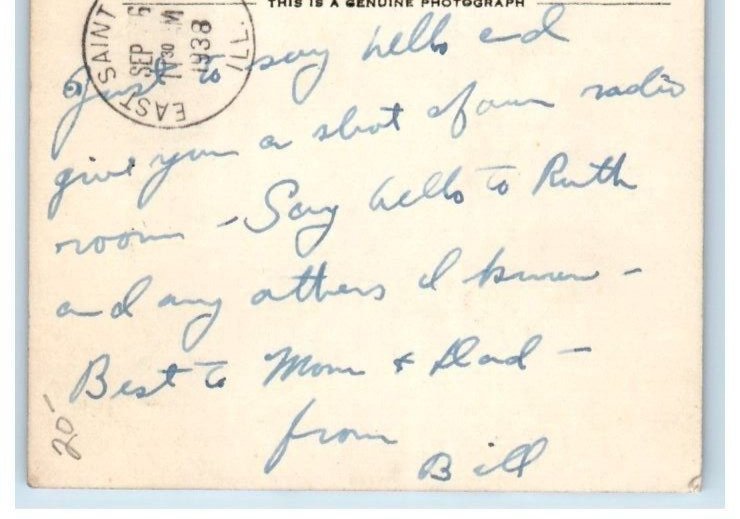 THIS IS A GENUINE PHOTOGRAPH
EAST SAINT
ILL.
SEP 6
11 30 M
1938
Just to say hello and
give you a shot of our radio
room - Say hello to Ruth
and any others I know -
Best to Mom & Dad -
from
Bill
20-